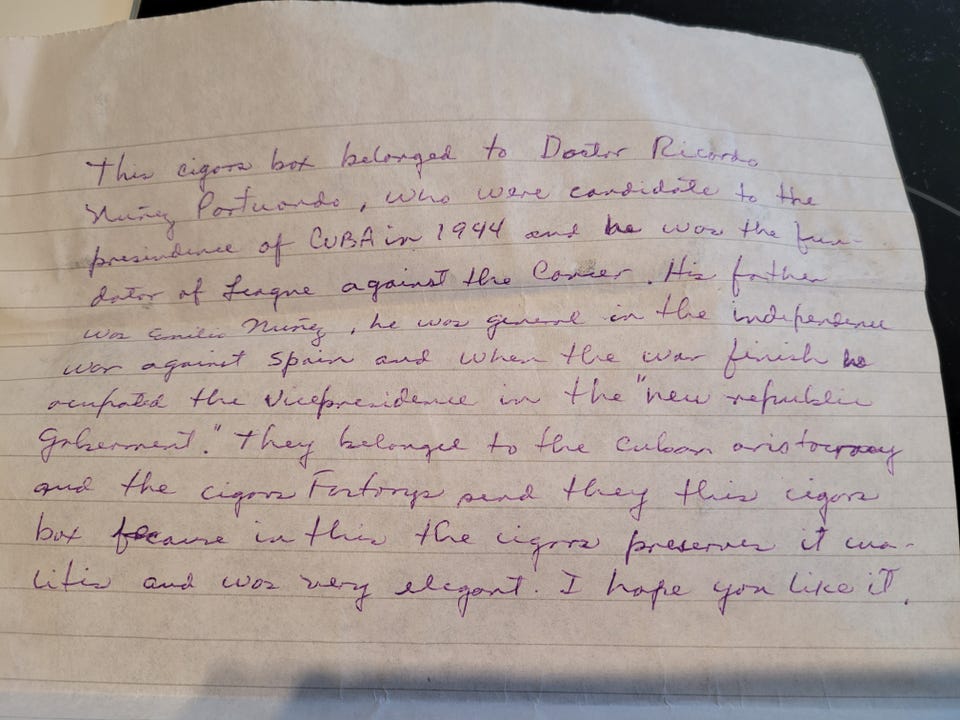 This cigars box belonged to Doctor Ricardo
Nuñez Portuondo, who were candidate to the
presindence of CUBA in 1944 and he was the fun-
dator of League against the Cancer. His father
was Emilio Nuñez, he was general in the independence
war against Spain and when the war finish he
ocupated the vicepresidence in the "new republic
Goberment." They belonged to the cuban aristocracy
and the cigars Factorys send they this cigars
box because in this the cigars preserves it cua-
litis and was very elegant. I hope you like it.